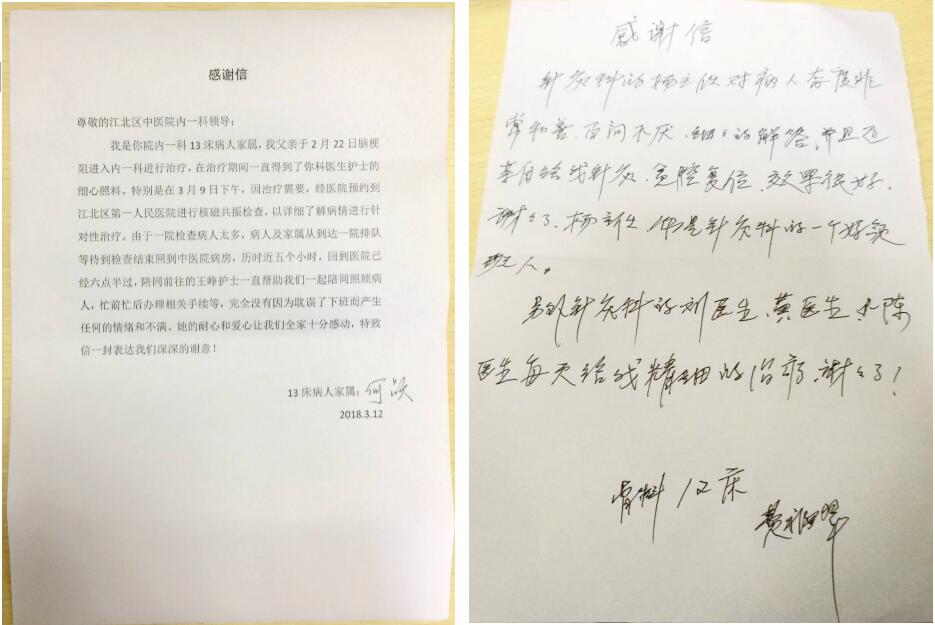 感谢信
尊敬的江北区中医院内一科领导：
我是你院内一科 13 床病人家属，我父亲于 2 月 22 日脑梗
阻进入内一科进行治疗，在治疗期间一直得到了你科医生护士的
细心照料。特别是在 3 月 9 日下午，因治疗需要，经医院预约到
江北区第一人民医院进行核磁共振检查，以详细了解病情进行针
对性治疗。由于一院检查病人太多，病人及家属从到达一院排队
等待到检查结束回到中医院病房，历时近五个小时，回到医院已
经六点半过，陪同前往的王峥护士一直帮助我们一起陪同照顾病
人，忙前忙后办理相关手续等，完全没有因为耽误了下班而产生
任何的情绪和不满。她的耐心和爱心让我们全家十分感动，特致
信一封表达我们深深的谢意！
13 床病人家属：何
2018.3.12
感谢信
针灸科的杨主任对病人态度非
常和善、百问不厌、细々的解答、并且还
亲自给我针灸、复位、效果很好、
谢々了、杨医生、你是针灸科的一个好领
班人。
另外针灸科的刘医生、黄医生和陈
医生每天给我精细的治疗、谢々了！
骨科 12 床
黄